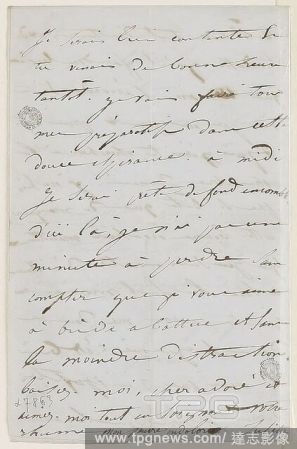 Je serai bien contente si
tu venais de bonne heure
tantôt. je vais faire tous
mes préparatifs dans cette
douce espérance. à midi
je serai prête de fond en comble
d'ici là, je n'ai pas une
minute à perdre sans
compter que je vous aime
à bride abattue et sans
la moindre distraction.
baisez-moi, cher adoré et
aimez-moi tout en
rhume
27863
TPG
www.tpgnews.com/達志影像